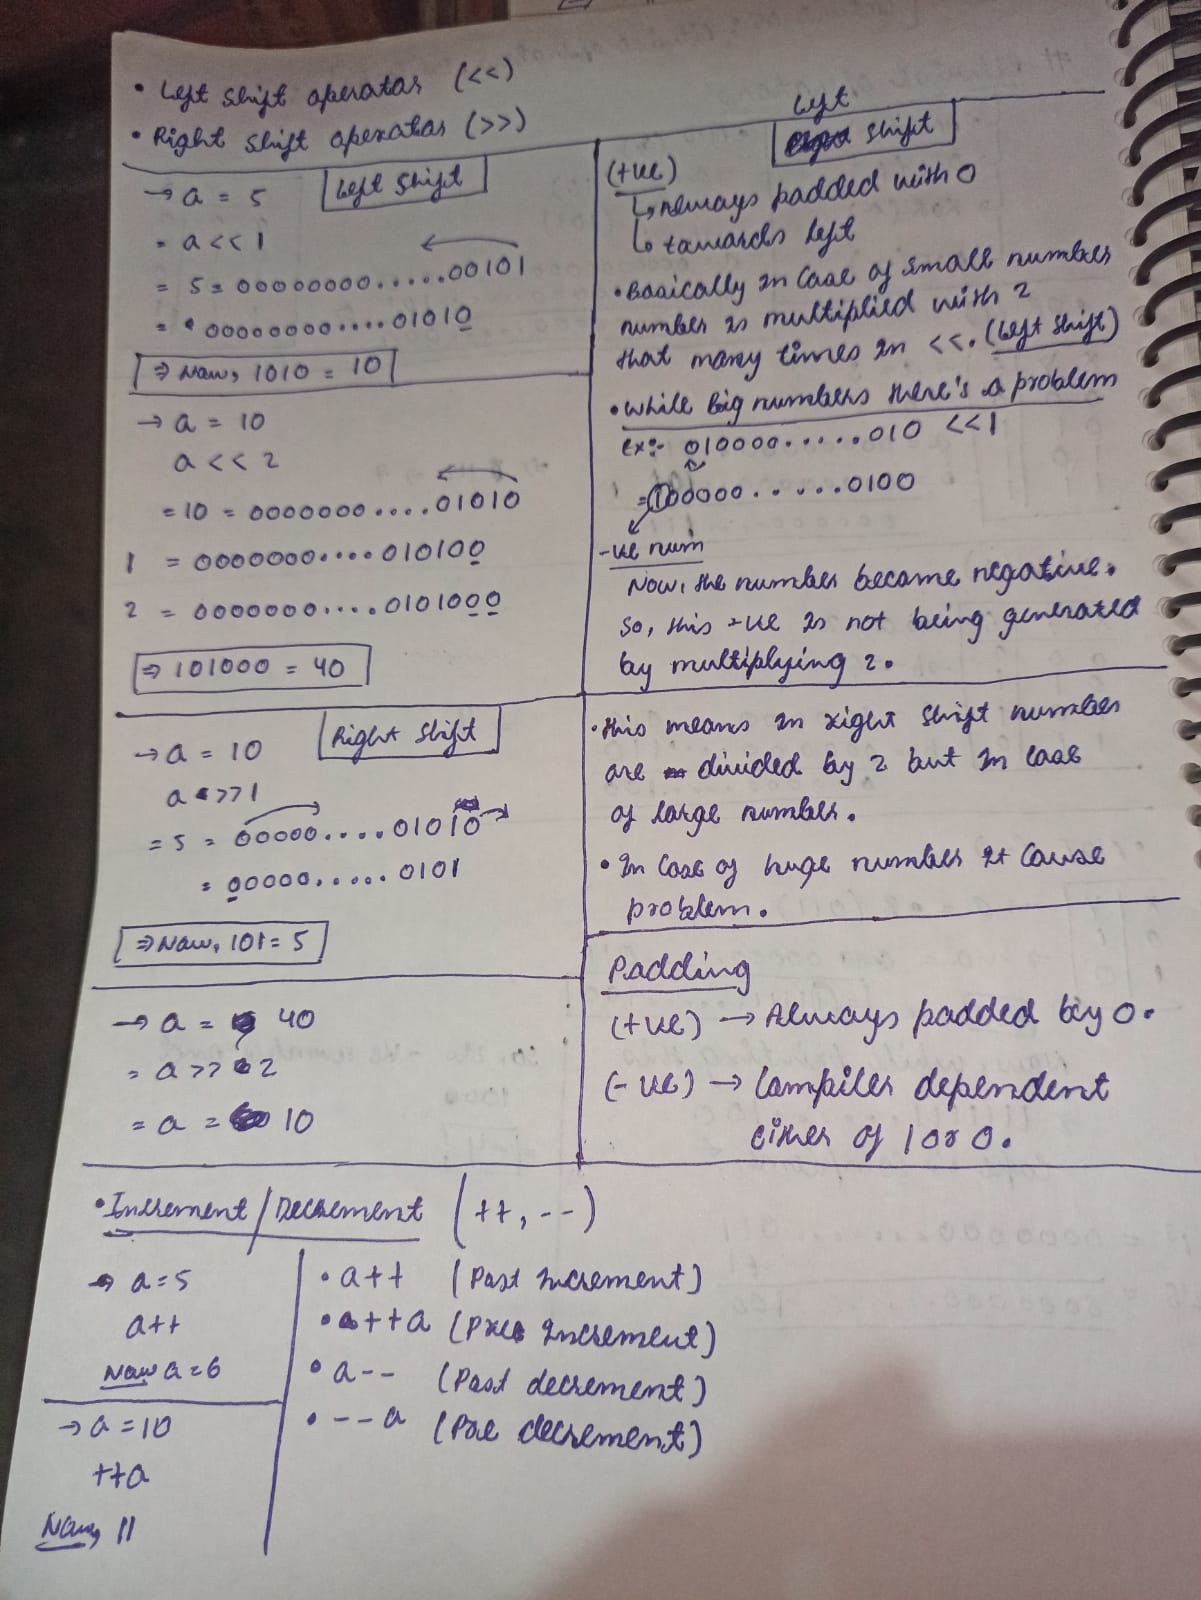 • Left shift operator (<<)
• Right shift operator (>>)
Left Shift
→ a = 5
= a << 1
= 5 = 00000000.....00101
= 00000000....01010
⇒ Now, 1010 = 10
→ a = 10
a << 2
= 10 = 0000000....01010
1 = 0000000....010100
2 = 0000000....0101000
⇒ 101000 = 40
Left
Shift
(+ve)
↳ Always padded with 0
↳ towards left
• Basically in case of small number
number is multiplied with 2
that many times in <<. (Left Shift)
• While big numbers there's a problem
ex:- 010000.....010 <<1
= 100000......0100
-ve num
Now, the number become negative.
So, this -ve is not being generated
by multiplying 2.
Right Shift
→ a = 10
a >>1
= 5 = 00000....01010
= 00000......0101
⇒ Now, 101 = 5
→ a = 40
= a >> 2
= a = 10
• This means in right shift number
are divided by 2 but in case
of large number.
• In case of huge number it cause
problem.
Padding
(+ve) → Always padded by 0.
(-ve) → Compiler dependent
either of 1 or 0.
• Increment/Decrement (++, --)
→ a = 5
a++
Now a = 6
→ a = 10
++a
Now, 11
• a++ (Post increment)
• ++a (Pre increment)
• a-- (Post decrement)
• --a (Pre decrement)